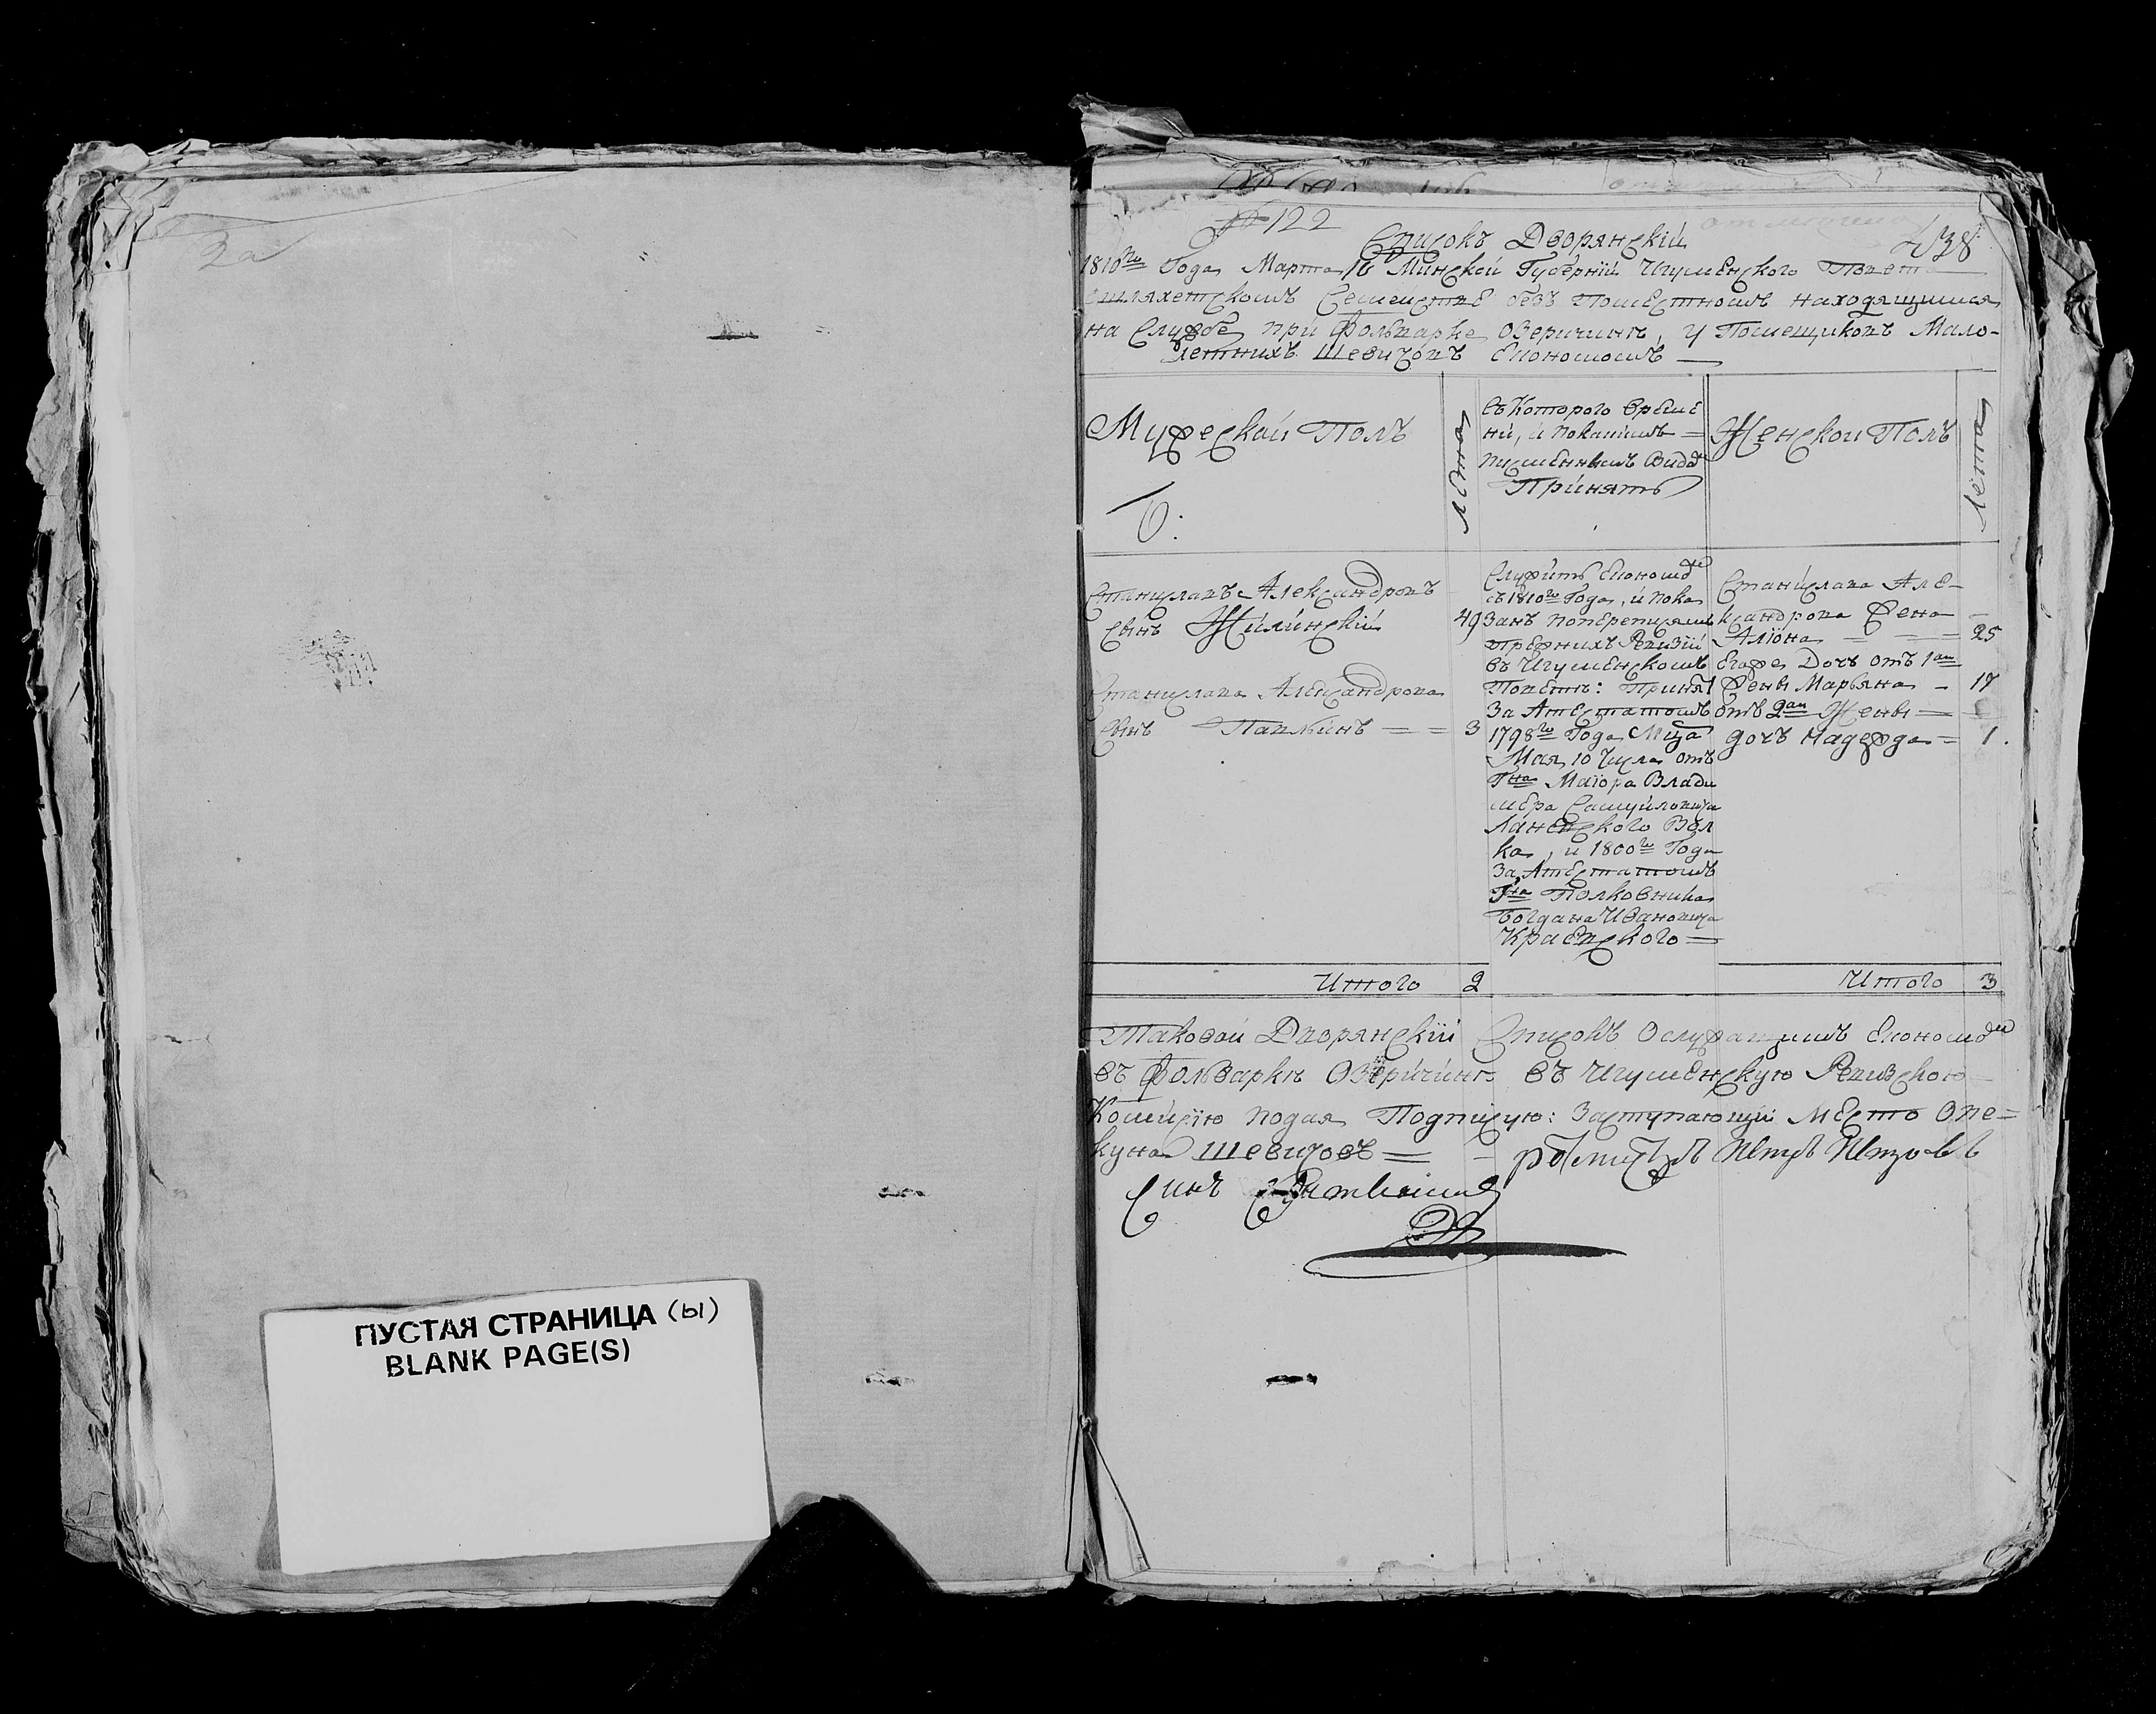 ПУСТАЯ СТРАНИЦА (ы)
BLANK PAGE(S)
№ 122
Списокъ Дворянскій
438
1810го Года Марта 16 Минской Губерніи Игуменского Повета
шляхетскомъ Семействе безъ Поместномъ находящимся
на Службе при фольварке Озеричине, у Помещиковъ Мало-
летнихъ Шевичовъ Економомъ
Мужеской Полъ
Лета
съ Которого Време
ни, и покакимъ
писменнымъ Видо
Принятъ
Женской Полъ
Лета
Станиславъ Александровъ
сынъ Жилинскій 49
Станислава Александрова
сынъ = = 3
Служитъ Економо
съ 1810го Года, и пока
занъ
прежнихъ Ревизіи
въ Игуменскомъ
Повете: Принят
За Атестатомъ
1798го Года Мца
Мая 10 Числа отъ
Гна Маіора Влади
мера Самуйловича
Ланского Вол
ка, и 1800го Года
За Атестатомъ
Гна Полковника
Богдана Ивановича
Краевского =
Станислава Але-
ксандрова Жена
Аліона = 25
Егоже Дочъ отъ 1ай
Жены Марьяна - 17
отъ 2ай Жены
дочъ Надежда = 1.
Итого 2
Итого 3
Таковой Дворянскій Списокъ Ослужащимъ Економо
въ фольварке Озеричине въ Игуменскую Ревизскою
Комисію подая Подписую: Заступающій Место Опе=
куна Шевичовъ = - Петръ Петровъ
Синъ